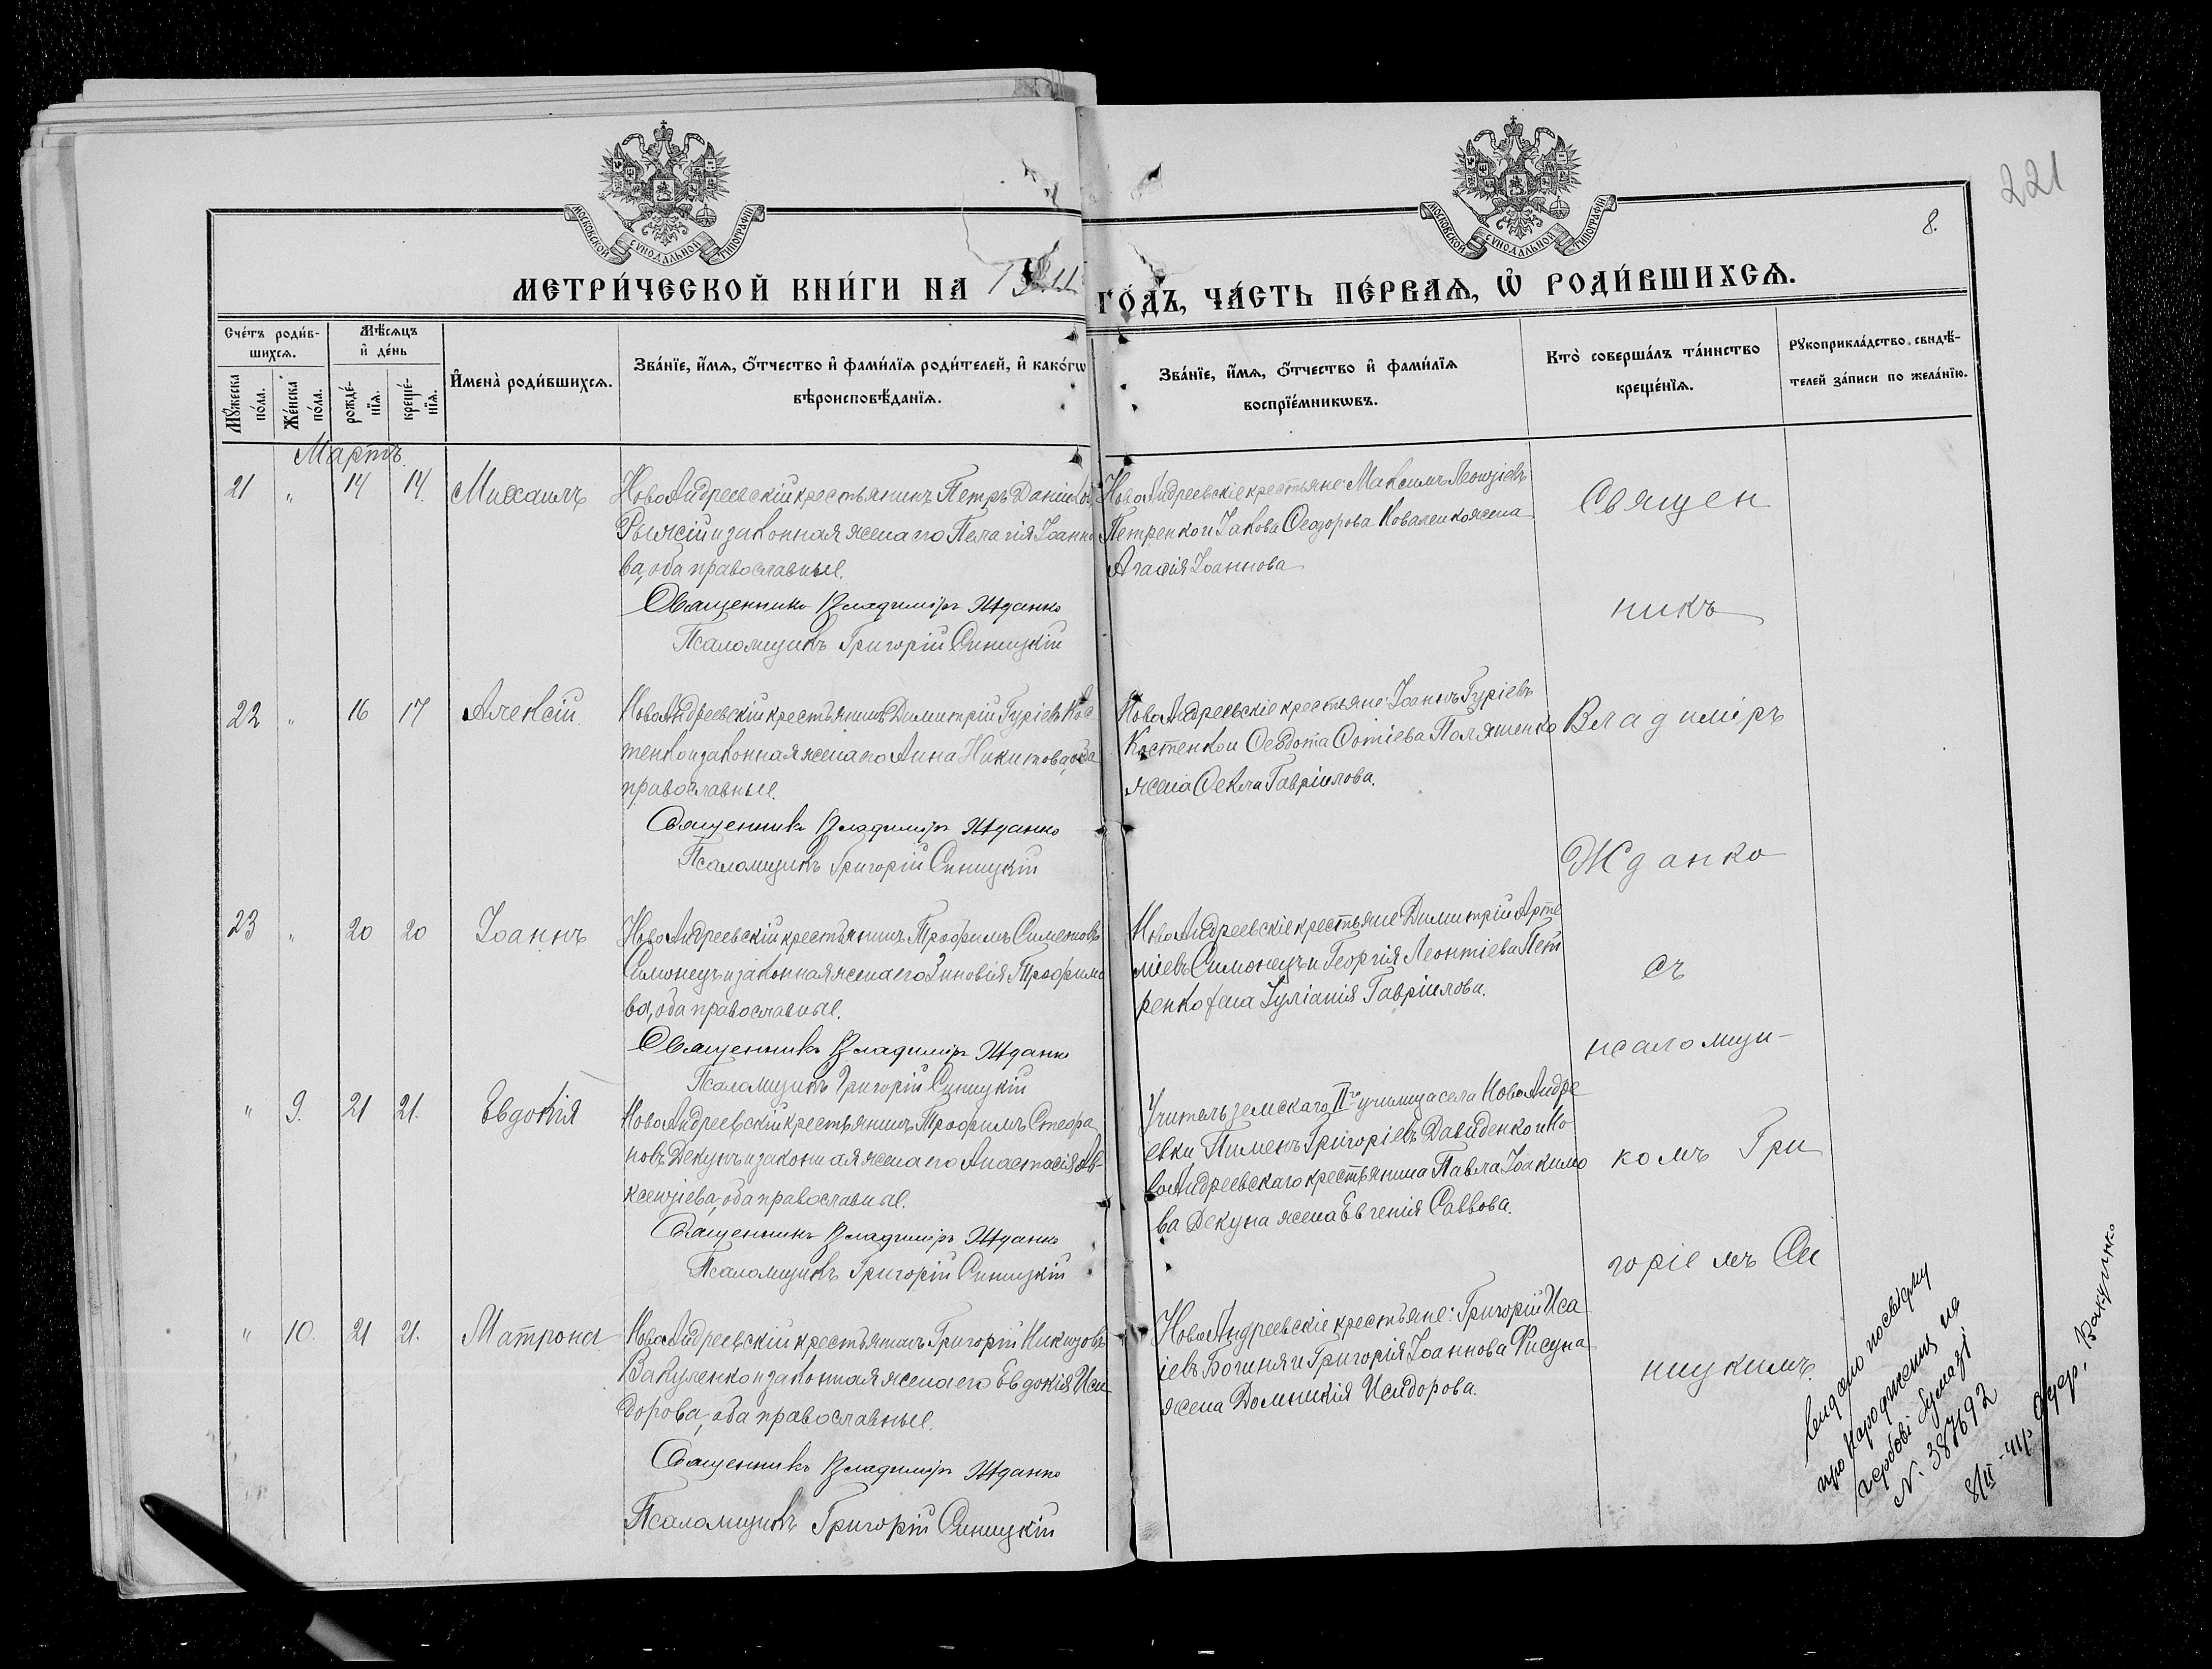 221
8.
МОСКОВСКОЙ СѴНОДАЛЬНОЙ ТИПОГРАФІИ
МОСКОВСКОЙ СѴНОДАЛЬНОЙ ТИПОГРАФІИ
МЕТРИ́ЧЕСКОЙ КНИ́ГИ НА 1911 ГО́ДЪ, ЧА́СТЬ ПЕ́РВАѦ, Ѡ҆ РОДИ́ВШИХСѦ.
Счéтъ роди́в-
шихсѧ.
Мѣ́сѧцъ
и҆ де́нь
Мꙋ́жеска
по́ла.
Же́нска
по́ла.
рожде́-
нїѧ.
креще́-
нїѧ.
И҆мена̀ роди́вшихсѧ.
Зва́нїе, и҆́мѧ, ѻ҆́тчество и҆ фами́лїѧ роди́телей, и҆ како́гѡ
вѣроисповѣ́данїѧ.
Зва́нїе, и҆́мѧ, ѻ҆́тчество и҆ фами́лїѧ
воспрїе́мникѡвъ.
Кто̀ соверша́лъ та́инство
креще́нїѧ.
Рꙋкоприкла́дство свидѣ́-
телей за́писи по жела́нїю.
Мартъ.
21 " 14 14. Михаилъ
НовоАндреевскій крестьянинъ Петръ Даніилов
и законная жена его Пелагія Іоанно
ва, оба православные.
Священникъ Владиміръ Жданко
Псаломщикъ Григорій Синицкій
НовоАндреевскіе крестьяне: Максимъ Леонтіевъ
Петренко и Іакова Ѳеодорова Коваленко жена
Агафія Іоаннова
22 " 16 17 Алексій.
НовоАндреевскій крестьянинъ Димитрій Гуріевъ Кос
тенко и законная жена его Анна Никитова, оба
православные.
Священникъ Владиміръ Жданко
Псаломщикъ Григорій Синицкій
НовоАндреевскіе крестьяне: Іоаннъ Гуріевъ
Костенко и Ѳеодота Фотіева Поляшенко
жена Ѳекла Гавріилова.
23 " 20 20 Іоаннъ
НовоАндреевскій крестьянинъ Трофимъ Симеоновъ
Симонецъ и законная жена его Зиновія Трофимо
ва, оба православные.
Священникъ Владиміръ Жданко
Псаломщикъ Григорій Синицкій
НовоАндреевскіе крестьяне Димитрій Арте
міевъ Симонецъ и Георгія Леонтіева Пет
ренко жена Іуліанія Гавріилова.
" 9. 21 21. Евдокія
НовоАндреевскій крестьянинъ Трофимъ Стефа
новъ Декунъ и законная жена его Анастасія Ав-
ксентіева, оба православные.
Священникъ Владиміръ Жданко
Псаломщикъ Григорій Синицкій
Учитель земскаго IIго училища села НовоАндре
евки Пименъ Григоріевъ Давиденко и Но
воАндреевскаго крестьянина Павла Іоакимо
ва Декуна жена Евгенія Саввова.
" 10. 21 21. Матрона
НовоАндреевскій крестьянинъ Григорій Никитовъ
Вакуленко и законная жена его Евдокія Иси
дорова, оба православные.
Священникъ Владиміръ Жданко
Псаломщикъ Григорій Синицкій
НовоАндреевскіе крестьяне: Григорій Иса
іевъ Богиня и Григорія Іоаннова Фисуна
жена Домникія Исидорова.
Священ
никъ
Владиміръ
Жданко
съ
псаломщи-
комъ Гри
горіемъ Си
ницкимъ.
про народження на
гербові бумазі
N. 387692
8/II-41р